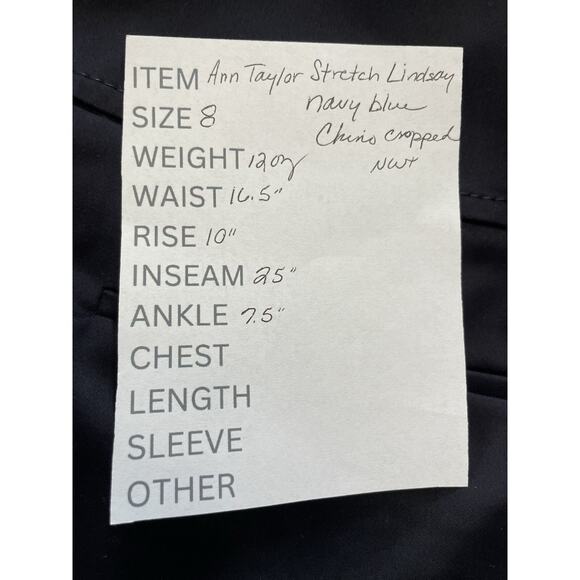 ITEM Ann Taylor Stretch Lindsay
navy blue
SIZE 8
Chino cropped
WEIGHT 12oz
NWT
WAIST 16.5"
RISE 10"
INSEAM 25"
ANKLE 7.5"
CHEST
LENGTH
SLEEVE
OTHER